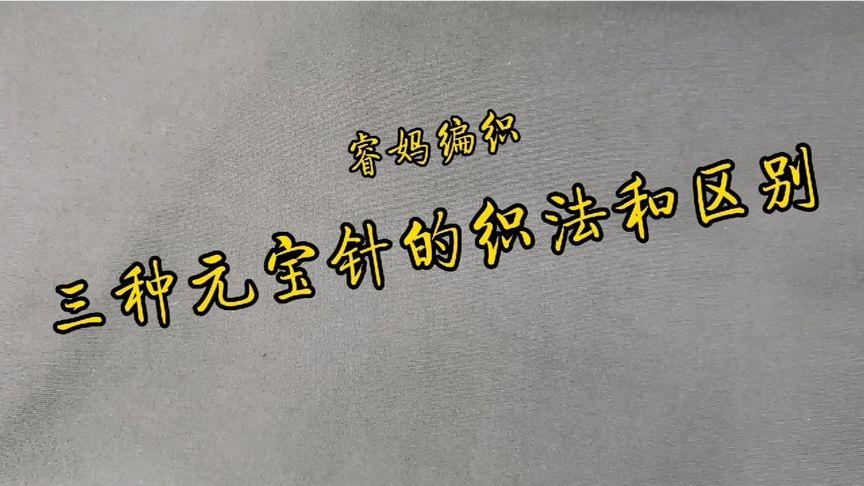 睿妈编织
三种元宝针的织法和区别